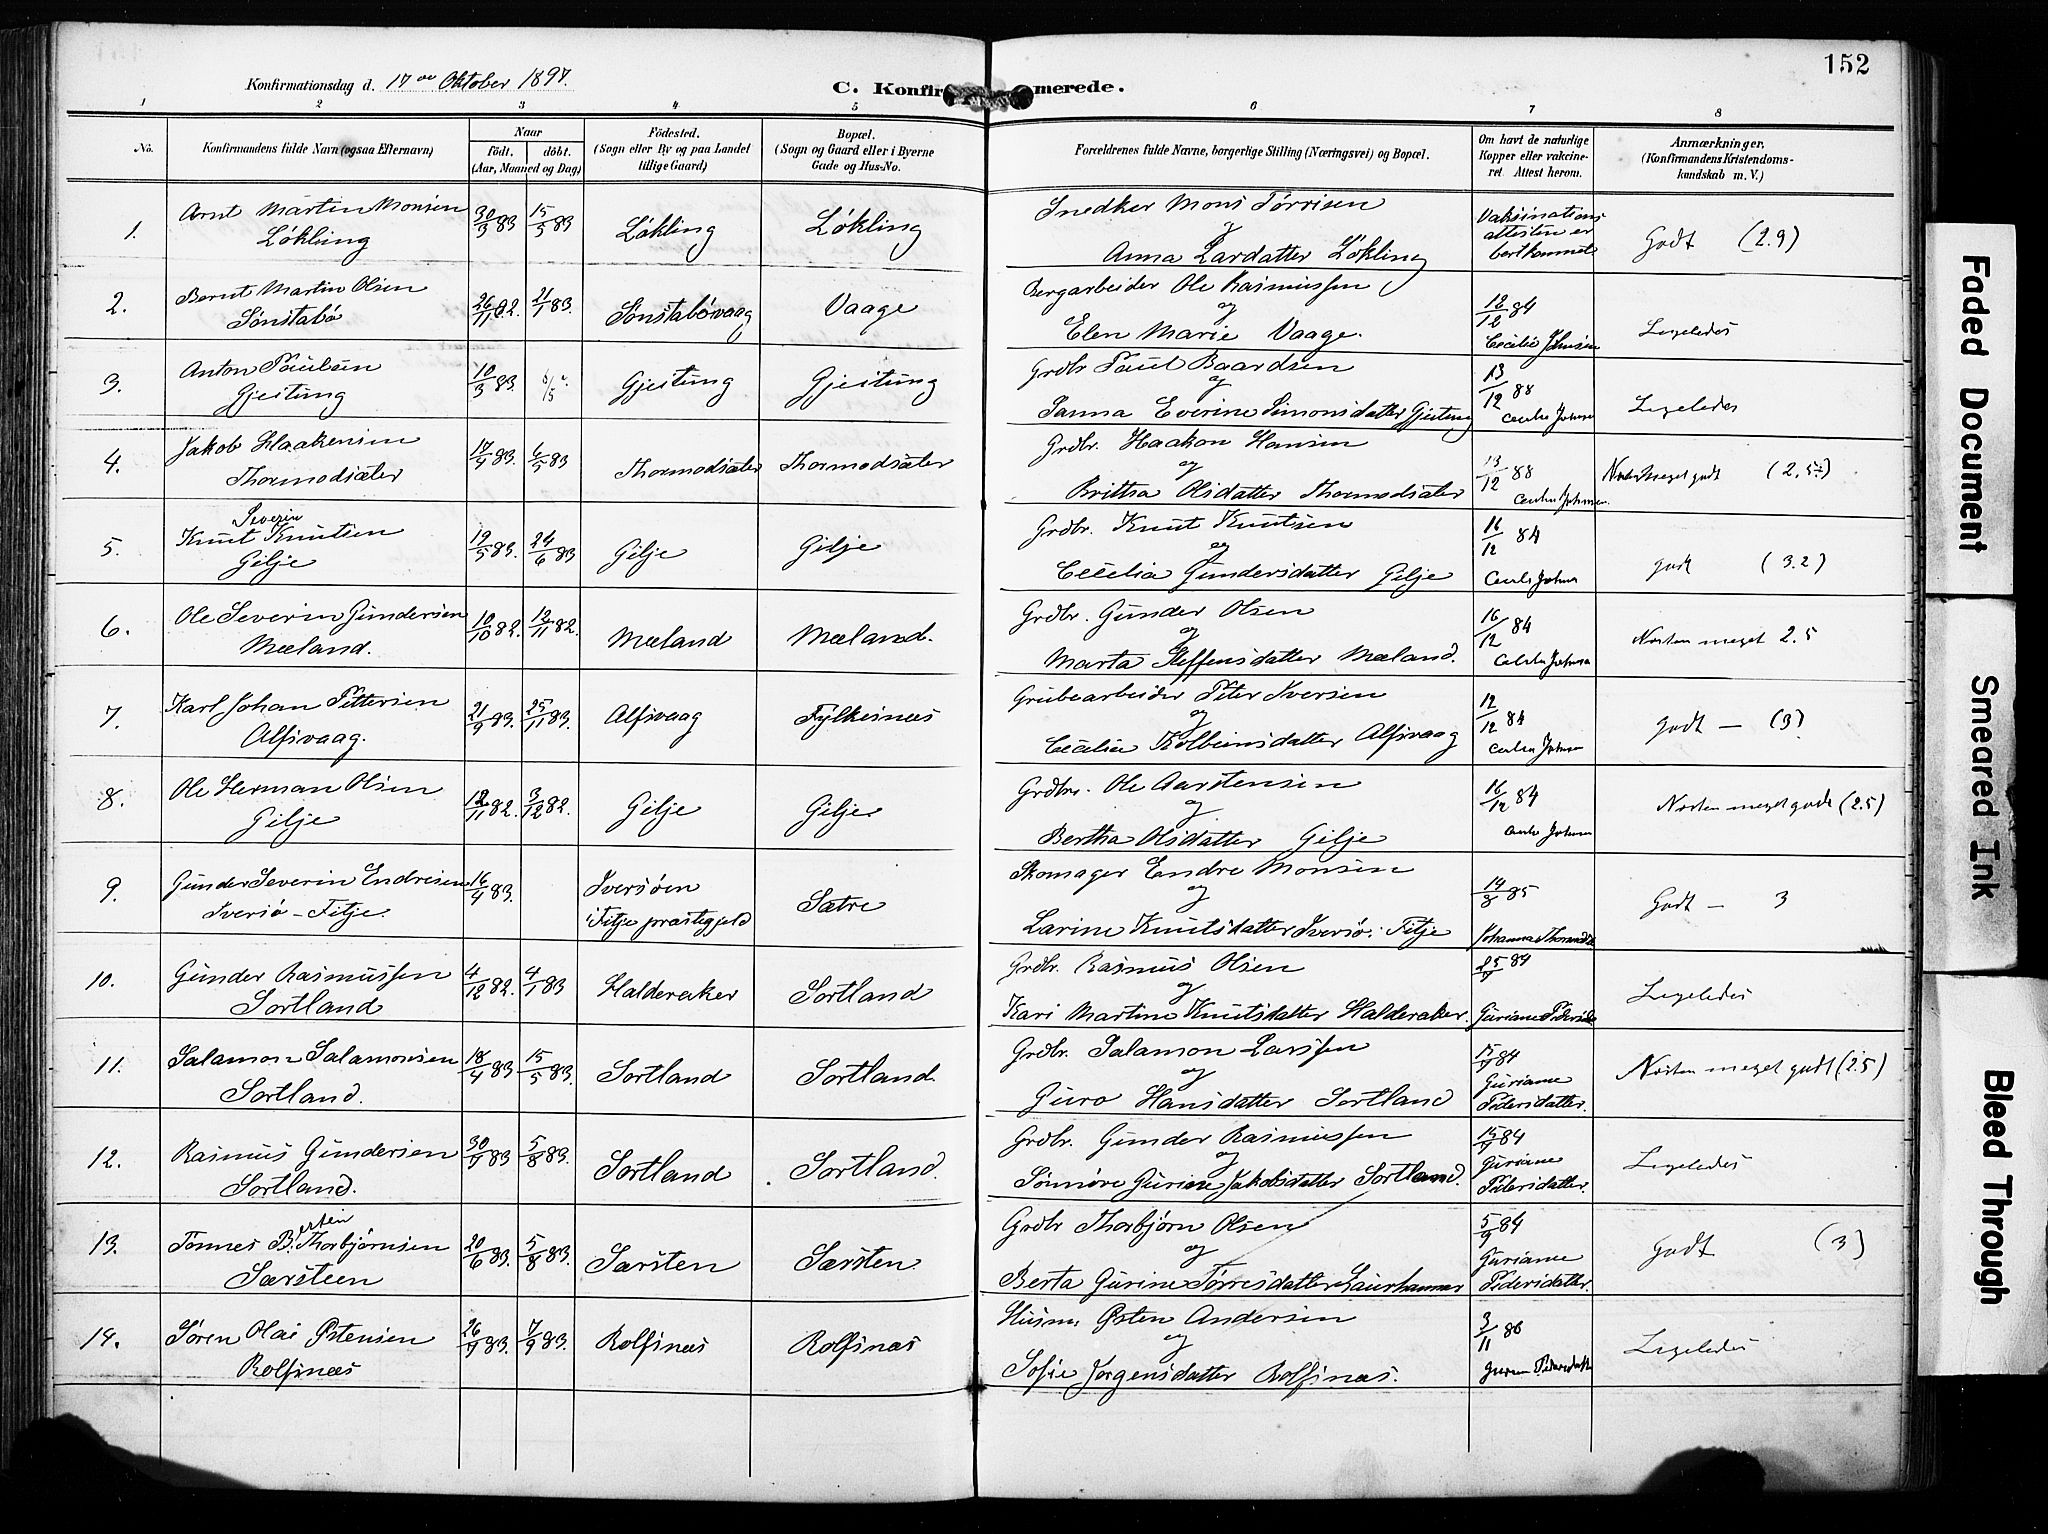 152
Konfirmationsdag d. 17de Oktober 1897.
C. Konfirmerede.
1 2 3 4 5 6 7 8
No.
Konfirmandens fulde Navn (ogsaa Efternavn)
Naar
födt. döbt.
(Aar, Maaned og Dag)
Födested.
(Sogn eller By og paa Landet
tillige Gaard)
Bopæl.
(Sogn og Gaard eller i Byerne
Gade og Hus-No.
Forældrenes fulde Navne, borgerlige Stilling (Næringsvei) og Bopæl.
Om havt de naturlige
Kopper eller vakcine-
ret Attest herom.
Anmærkninger.
(Konfirmandens Kristendoms-
kundskab m. V.)
1. Arnt Martin Monsen
Løkling
30/3 83 15/5 83 Løkling Løkling
Snedker Mons Tørrisen
og
Anna Larsdatter Løkling
Vaksinations
attesten er
bortkommet
Godt (2.9)
2. Bernt Martin Olsen
Sønstabø
26/11 82. 21/1 83. Sønstabøvaag Vaage
Bergarbeider Ole Rasmussen
og
Elen Marie Vaage.
12/12 84
Cecilie Johnsen
Ligeledes
3. Anton Paulsen
Gjeitung
10/3 83. Gjeitung Gjeitung
Grdbr. Paul Baardsen
og
Sanna Everine Simonsdatter Gjeitung
13/12 88
Cecilie Johnsen
Ligeledes
4. Jakob Haakensen
Thormodsæter
17/4 83. 6/5 83 Thormodsæter Thormodsæter
Grdbr. Haakon Hansen
og
Brittha Olsdatter Thormodsæter
13/12 88
Cecilie Johnsen
Næsten meget godt (2.5)
5. Knut Severin Knutsen
Gilje
19/5 83. 24/6 83 Gilje Gilje
Grdbr. Knut Knutsen
og
Cecelia Gundersdatter Gilje
16/12 84
Cecilie Johnsen
godt (3.2)
6. Ole Severin Gundersen
Mæland.
10/10 82. 12/11 82. Mæland Mæland.
Grdbr. Gunder Olsen
og
Marta Steffensdatter Mæland.
16/12 84
Cecilie Johnsen
Næsten meget 2.5
7. Karl Johan Pettersen
Alfsvaag.
21/9 83. 25/11 83. Alfsvaag Fylkesnæs
Grubearbeider Peter Iversen
og
Cecelia Kolbeinsdatter Alfsvaag
12/12 84
Cecilie Johnsen
godt — (3)
8. Ole Herman Olsen
Gilje
12/11 82. 3/12 82. Gilje Gilje
Grdbr. Ole Aarstensen
og
Bertha Olsdatter Gilje
16/12 84
Cecilie Johnsen
Næsten meget godt (2.5)
9. Gunder Severin Endresen
Iversø – Fitje.
16/4 83. Iversøen
i Fitje præstegjeld
Sætre
Skomager Endre Monsen
og
Larine Knutsdatter Iversø i Fitje
14/8 85
Johanna
Godt — 3
10. Gunder Rasmussen
Sortland
4/12 82. 4/1 83 Halderaker Sortland
Grdbr. Rasmus Olsen
og
Kari Martine Knutsdatter Halderaker.
84
Guriane Pedersd.
Ligeledes
11. Salamon Salamonsen
Sortland.
18/4 83 15/5 83. Sortland Sortland.
Grdbr. Salamon Larssen
og
Guro Hansdatter Sortland
15/9 84
Guriane
Pedersdatter.
Næsten meget godt (2.5)
12. Rasmus Gundersen
Sortland.
83 5/8 83. Sortland Sortland.
Grdbr. Gunder Rasmussen
og
Sønnøve Guriane Jakobsdatter Sortland.
15/9 84
Guriane
Pedersdatter.
Ligeledes
13. Tønnes Bertin Thorbjørnsen
Særsteen
20/6 83. 5/8 83. Særsten Særsten.
Grdbr. Thorbjørn Olsen
og
Berta Gurine Tørresdatter Laurhammer
5/9 84
Guriane
Pedersdatter.
Godt (3)
14. Søren Olai Østensen
Rolfsnæs
83. 7/9 83. Rolfsnæs Rolfsnæs
Husm. Østen Andersen
og
Sofie Jørgensdatter Rolfsnæs.
3/11 86
Pedersdatter
Ligeledes
Faded Document
Smeared Ink
Bleed Through